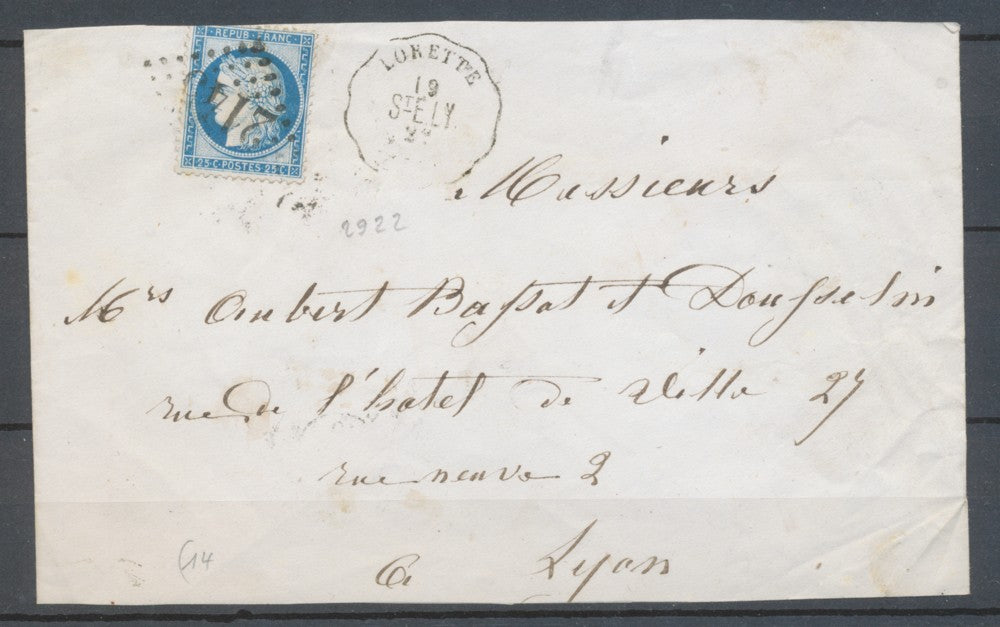 REPUB. FRANC.
25 C. POSTES 25 C.
LORETTE
19
ST E. LY.
2922
Messieurs
Mrs Aubert Bassat et Dousselin
rue de l'hotel de Ville 27
rue neuve 2
(14
a Lyon